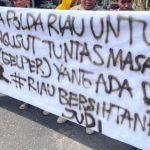 POLDA RIAU UNTU
USUT TUNTAS MASA
(GELPER) YANG ADA D
#RIAU BERSIHTAN
SUDI